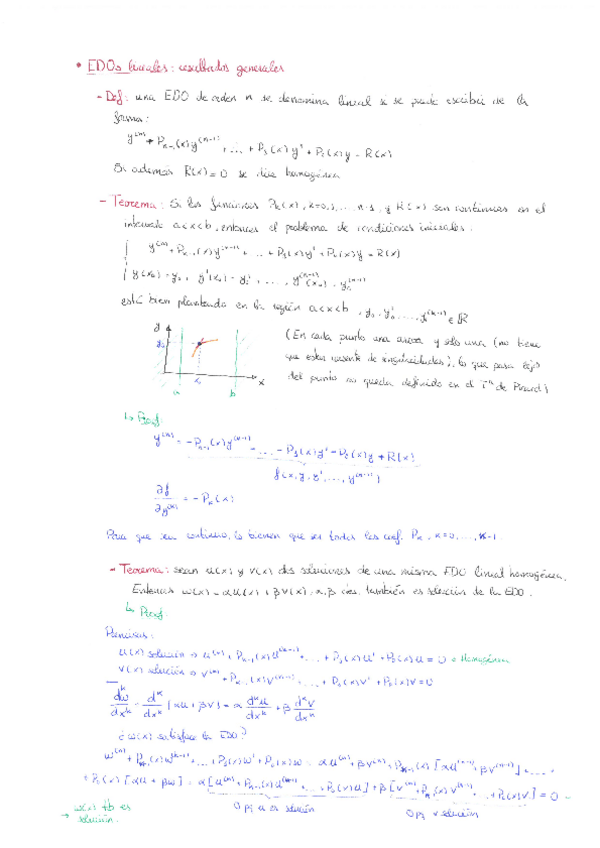 • EDOs lineales: resultados generales
- Def: una EDO de orden n se denomina lineal si se puede escribir de la
forma:
y⁽ⁿ⁾ + Pₙ₋₁(x)y⁽ⁿ⁻¹⁾ + ... + P₁(x)y' + P₀(x)y = R(x)
Si además R(x) = 0 se dice homogénea
- Teorema: Si las funciones Pₖ(x), k=0,1,... n-1, y R(x) son continuas en el
intervalo a<x<b, entonces el problema de condiciones iniciales:
y⁽ⁿ⁾ + Pₙ₋₁(x)y⁽ⁿ⁻¹⁾ + ... + P₁(x)y' + P₀(x)y = R(x)
y(x₀) = y₀, y'(x₀) = y₀', ..., y⁽ⁿ⁻¹⁾(x₀) = y₀⁽ⁿ⁻¹⁾
está bien planteado en la región a<x<b, y₀, y₀', ..., y₀⁽ⁿ⁻¹⁾ ∈ ℝ
y
y₀
x₀
x
a
b
(En cada punto una curva y sólo una (no tiene
que estar exento de singularidades), lo que pasa lejos
del punto no queda definido en el Tᵐᵃ de Picard)
↳ Proof:
y⁽ⁿ⁾ = -Pₙ₋₁(x)y⁽ⁿ⁻¹⁾ - ... - P₁(x)y' - P₀(x)y + R(x)
f(x, y, y', ..., y⁽ⁿ⁻¹⁾)
∂f/∂y⁽ᵏ⁾ = -Pₖ(x)
Para que sea continuo, lo tienen que ser todos los coef. Pₖ, k=0,...,n-1.
- Teorema: sean u(x) y v(x) dos soluciones de una misma EDO lineal homogénea.
Entonces w(x) = αu(x) + βv(x), α, β ctes, también es solución de la EDO.
↳ Proof:
Premisas:
u(x) solución ⇒ u⁽ⁿ⁾ + Pₙ₋₁(x)u⁽ⁿ⁻¹⁾ + ... + P₁(x)u' + P₀(x)u = 0 ← Homogénea
v(x) solución ⇒ v⁽ⁿ⁾ + Pₙ₋₁(x)v⁽ⁿ⁻¹⁾ + ... + P₁(x)v' + P₀(x)v = 0
dᵏw/dxᵏ = dᵏ/dxᵏ [αu + βv] = α dᵏu/dxᵏ + β dᵏv/dxᵏ
¿w(x) satisface la EDO?
w⁽ⁿ⁾ + Pₙ₋₁(x)w⁽ⁿ⁻¹⁾ + ... + P₁(x)w' + P₀(x)w = αu⁽ⁿ⁾ + βv⁽ⁿ⁾ + Pₙ₋₁(x)[αu⁽ⁿ⁻¹⁾ + βv⁽ⁿ⁻¹⁾] + ... +
+ P₀(x)[αu + βv] = α[u⁽ⁿ⁾ + Pₙ₋₁(x)u⁽ⁿ⁻¹⁾ + ... + P₀(x)u] + β[v⁽ⁿ⁾ + Pₙ₋₁(x)v⁽ⁿ⁻¹⁾ + ... + P₀(x)v] = 0
0 pq u es solución
0 pq v solución
→ w(x) tb es
solución.